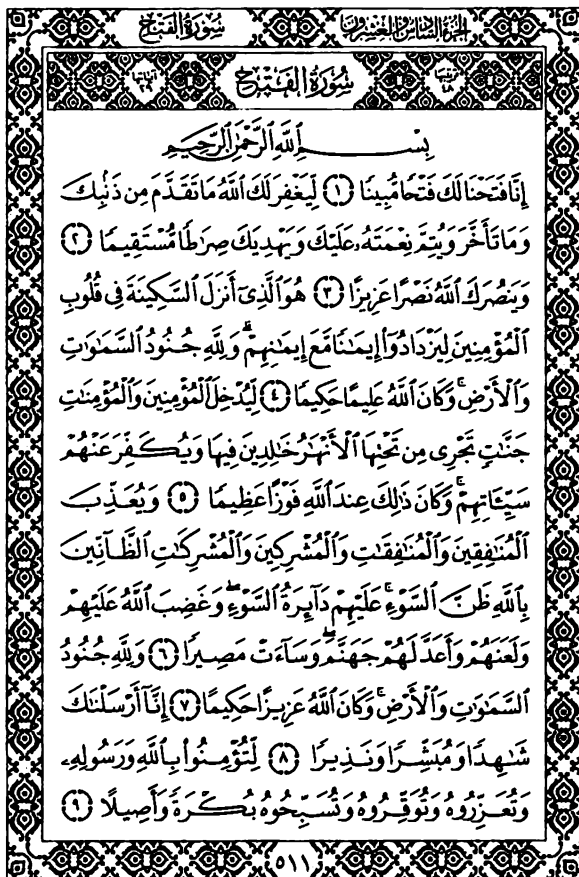 سُورَةُ الفَتْحِ الجُزْءُ السَّادِسُ وَالعِشْرُونَ
سُورَةُ الفَتْحِ
بِسْمِ ٱللَّهِ ٱلرَّحْمَٰنِ ٱلرَّحِيمِ
إِنَّا فَتَحْنَا لَكَ فَتْحًا مُّبِينًا ﴿١﴾ لِّيَغْفِرَ لَكَ ٱللَّهُ مَا تَقَدَّمَ مِن ذَنۢبِكَ
وَمَا تَأَخَّرَ وَيُتِمَّ نِعْمَتَهُۥ عَلَيْكَ وَيَهْدِيَكَ صِرَٰطًا مُّسْتَقِيمًا ﴿٢﴾
وَيَنصُرَكَ ٱللَّهُ نَصْرًا عَزِيزًا ﴿٣﴾ هُوَ ٱلَّذِىٓ أَنزَلَ ٱلسَّكِينَةَ فِى قُلُوبِ
ٱلْمُؤْمِنِينَ لِيَزْدَادُوٓا۟ إِيمَٰنًا مَّعَ إِيمَٰنِهِمْ ۗ وَلِلَّهِ جُنُودُ ٱلسَّمَٰوَٰتِ
وَٱلْأَرْضِ ۚ وَكَانَ ٱللَّهُ عَلِيمًا حَكِيمًا ﴿٤﴾ لِّيُدْخِلَ ٱلْمُؤْمِنِينَ وَٱلْمُؤْمِنَٰتِ
جَنَّٰتٍ تَجْرِى مِن تَحْتِهَا ٱلْأَنْهَٰرُ خَٰلِدِينَ فِيهَا وَيُكَفِّرَ عَنْهُمْ
سَيِّـَٔاتِهِمْ ۚ وَكَانَ ذَٰلِكَ عِندَ ٱللَّهِ فَوْزًا عَظِيمًا ﴿٥﴾ وَيُعَذِّبَ
ٱلْمُنَٰفِقِينَ وَٱلْمُنَٰفِقَٰتِ وَٱلْمُشْرِكِينَ وَٱلْمُشْرِكَٰتِ ٱلظَّآنِّينَ
بِٱللَّهِ ظَنَّ ٱلسَّوْءِ ۚ عَلَيْهِمْ دَآئِرَةُ ٱلسَّوْءِ ۖ وَغَضِبَ ٱللَّهُ عَلَيْهِمْ
وَلَعَنَهُمْ وَأَعَدَّ لَهُمْ جَهَنَّمَ ۖ وَسَآءَتْ مَصِيرًا ﴿٦﴾ وَلِلَّهِ جُنُودُ
ٱلسَّمَٰوَٰتِ وَٱلْأَرْضِ ۚ وَكَانَ ٱللَّهُ عَزِيزًا حَكِيمًا ﴿٧﴾ إِنَّآ أَرْسَلْنَٰكَ
شَٰهِدًا وَمُبَشِّرًا وَنَذِيرًا ﴿٨﴾ لِّتُؤْمِنُوا۟ بِٱللَّهِ وَرَسُولِهِۦ
وَتُعَزِّرُوهُ وَتُوَقِّرُوهُ وَتُسَبِّحُوهُ بُكْرَةً وَأَصِيلًا ﴿٩﴾
٥١١